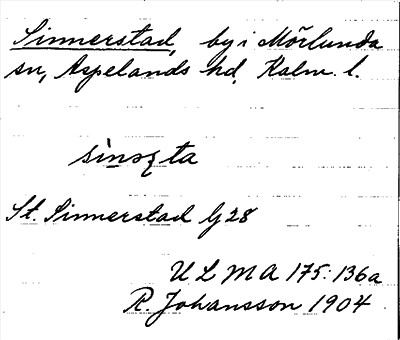 Sinnerstad, by i Mörlunda
sn, Aspelands hd, Kalm. l.
St. Sinnerstad G 28
U L M A 175:136a
R. Johansson 1904